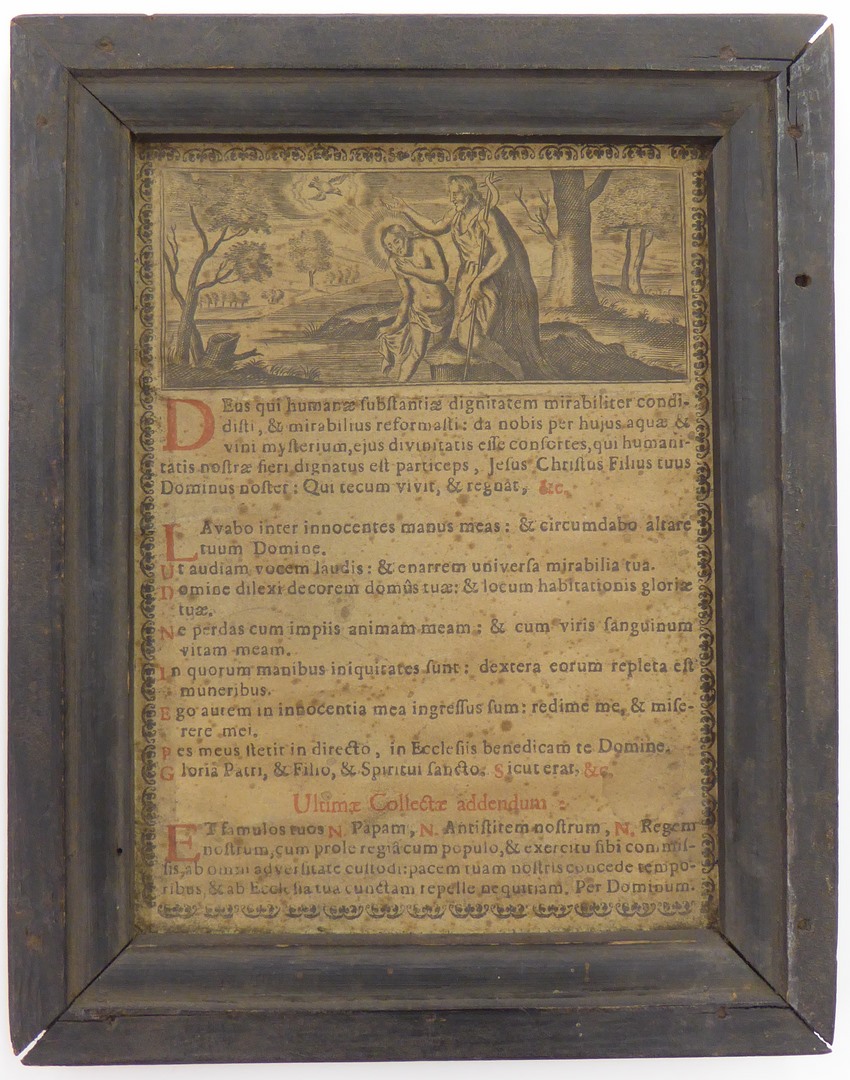 DEus qui humanæ ſubſtantiæ dignitatem mirabiliter condi-
diſti, & mirabilius reformaſti: da nobis per hujus aquæ &
vini myſterium, ejus divinitatis eſſe conſortes, qui humani-
tatis noſtræ fieri dignatus eſt particeps, Jeſus Chriſtus Filius tuus
Dominus noſter: Qui tecum vivit, & regnat, &c.
LAvabo inter innocentes manus meas: & circumdabo altare
tuum Domine.
Ut audiam vocem laudis: & enarrem univerſa mirabilia tua.
Domine dilexi decorem domûs tuæ: & locum habitationis gloriæ
tuæ.
Ne perdas cum impiis animam meam: & cum viris ſanguinum
vitam meam.
In quorum manibus iniquitates ſunt: dextera eorum repleta eſt
muneribus.
Ego autem in innocentia mea ingreſſus ſum: redime me, & miſe-
rere mei.
Pes meus ſtetit in directo, in Eccleſiis benedicam te Domine.
Gloria Patri, & Filio, & Spiritui ſancto. Sicut erat, &c.
Ultimæ Collectæ addendum:
ET famulos tuos N. Papam, N. Antiſtitem noſtrum, N. Regem
noſtrum, cum prole regiâ cum populo, & exercitu ſibi commiſ-
ſis, ab omni adverſitate cuſtodi: pacem tuam noſtris concede tempo-
ribus, & ab Eccleſia tua cunctam repelle nequitiam. Per Dominum.